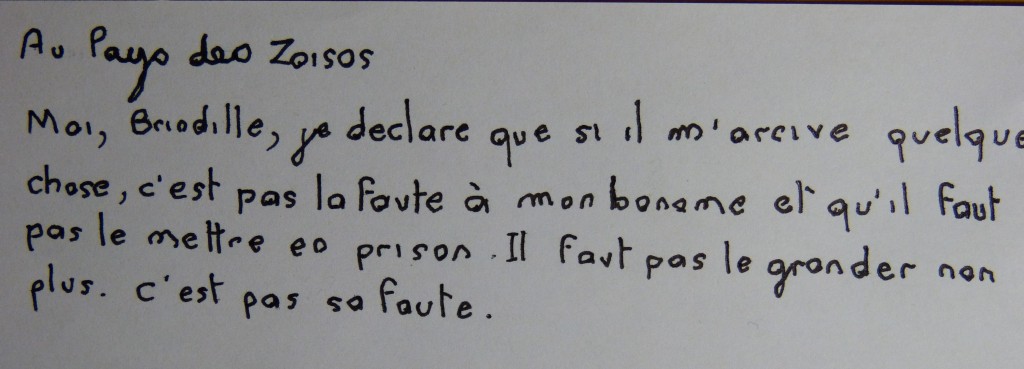 Au Pays des Zoisos
Moi, Briodille, je declare que si il m'arrive quelque
chose, c'est pas la faute à mon boname et qu'il faut
pas le mettre en prison. Il faut pas le gronder non
plus. c'est pas sa faute.